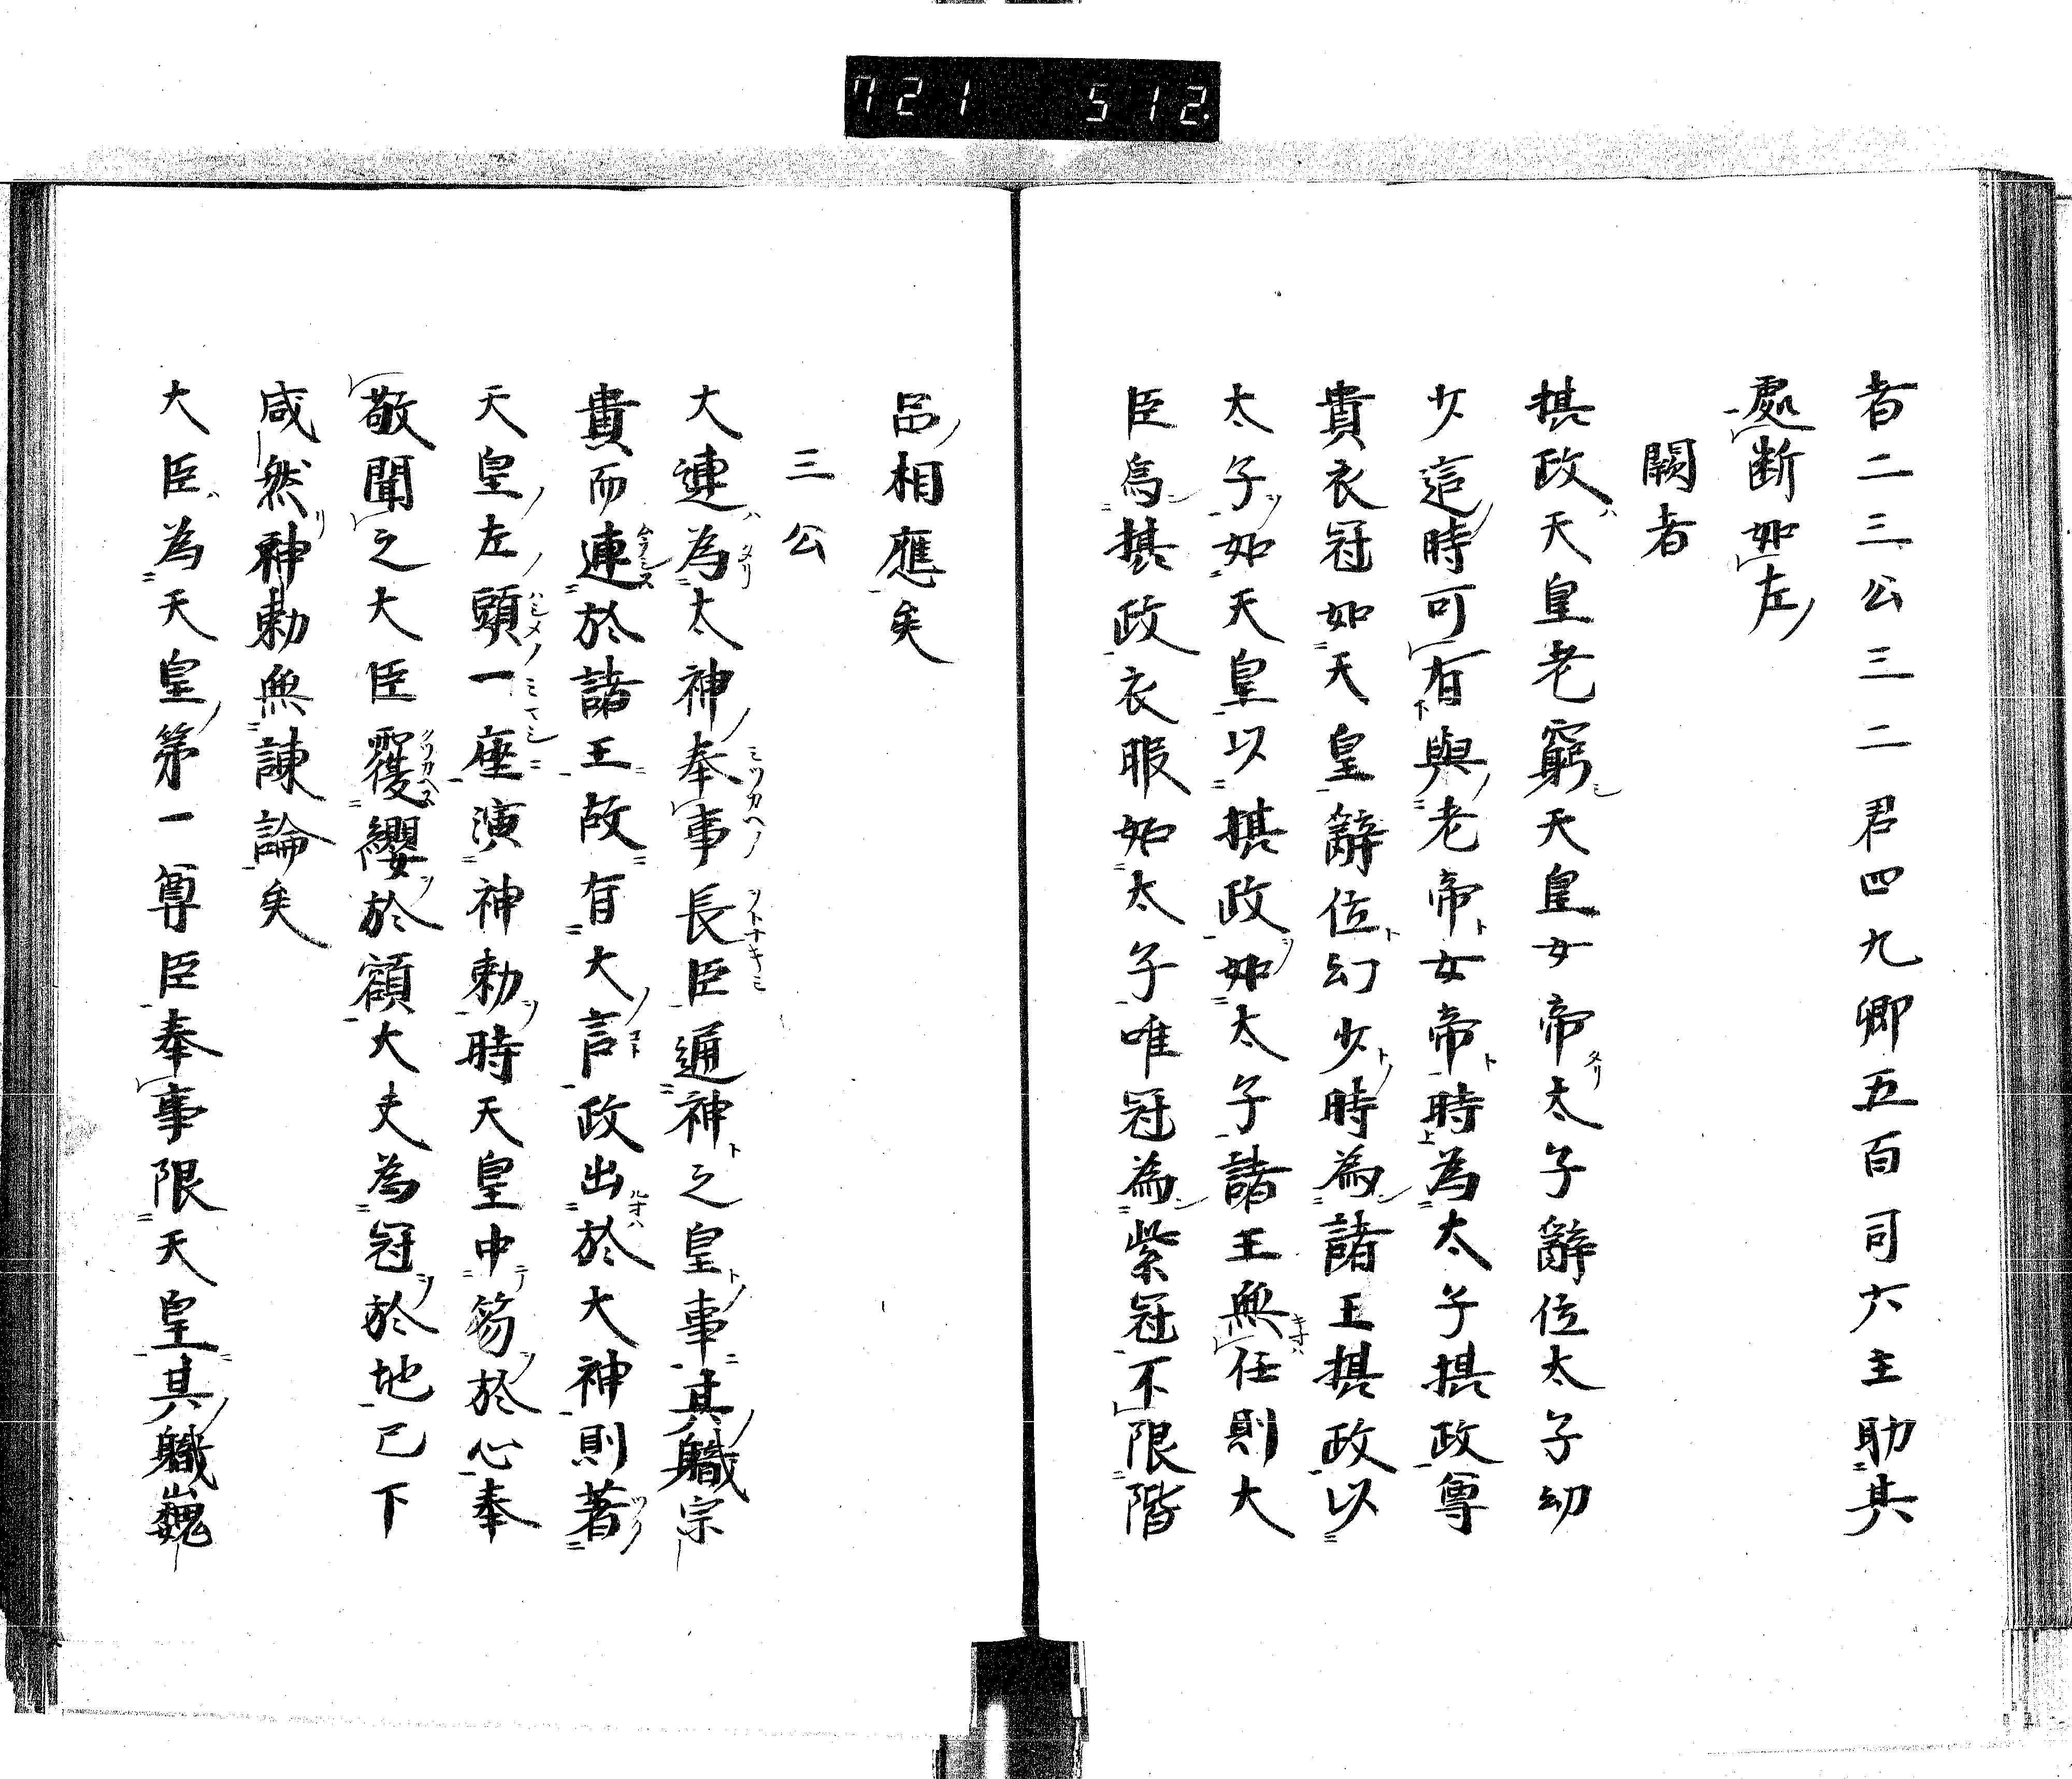 721 512.
者二三公三二君四九卿五百司六主助其
處断如左
闕者
摂政天皇老窮天皇女帝太子辭位太子幼
少這時可有與老帝女帝時為太子摂政尊
貴衣冠如天皇辭位幻少時為諸王摂政以
太子如天皇以摂政如太子諸王無任則大
臣為摂政衣服如太子唯冠為紫冠不限階
品相應矣
三公
大連為太神奉事長臣通神之皇事其軄宗
貴而連於諸王故有大言政出於大神則著
天皇左頭一座演神勅時天皇中笏於心奉
敬聞之大臣覆纓於額大夫為冠於地已下
咸然神勅無諫論矣
大臣為天皇第一尊臣奉事限天皇其軄巍